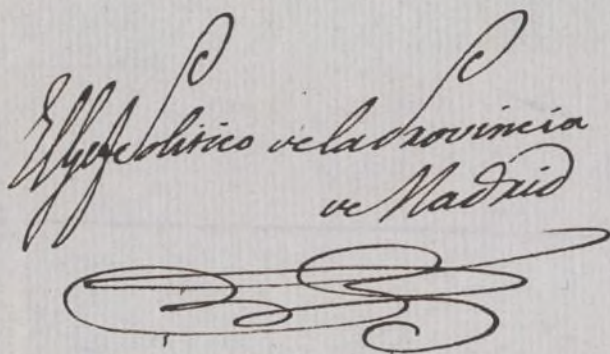 El Gefe Politico de la Provincia
de Madrid